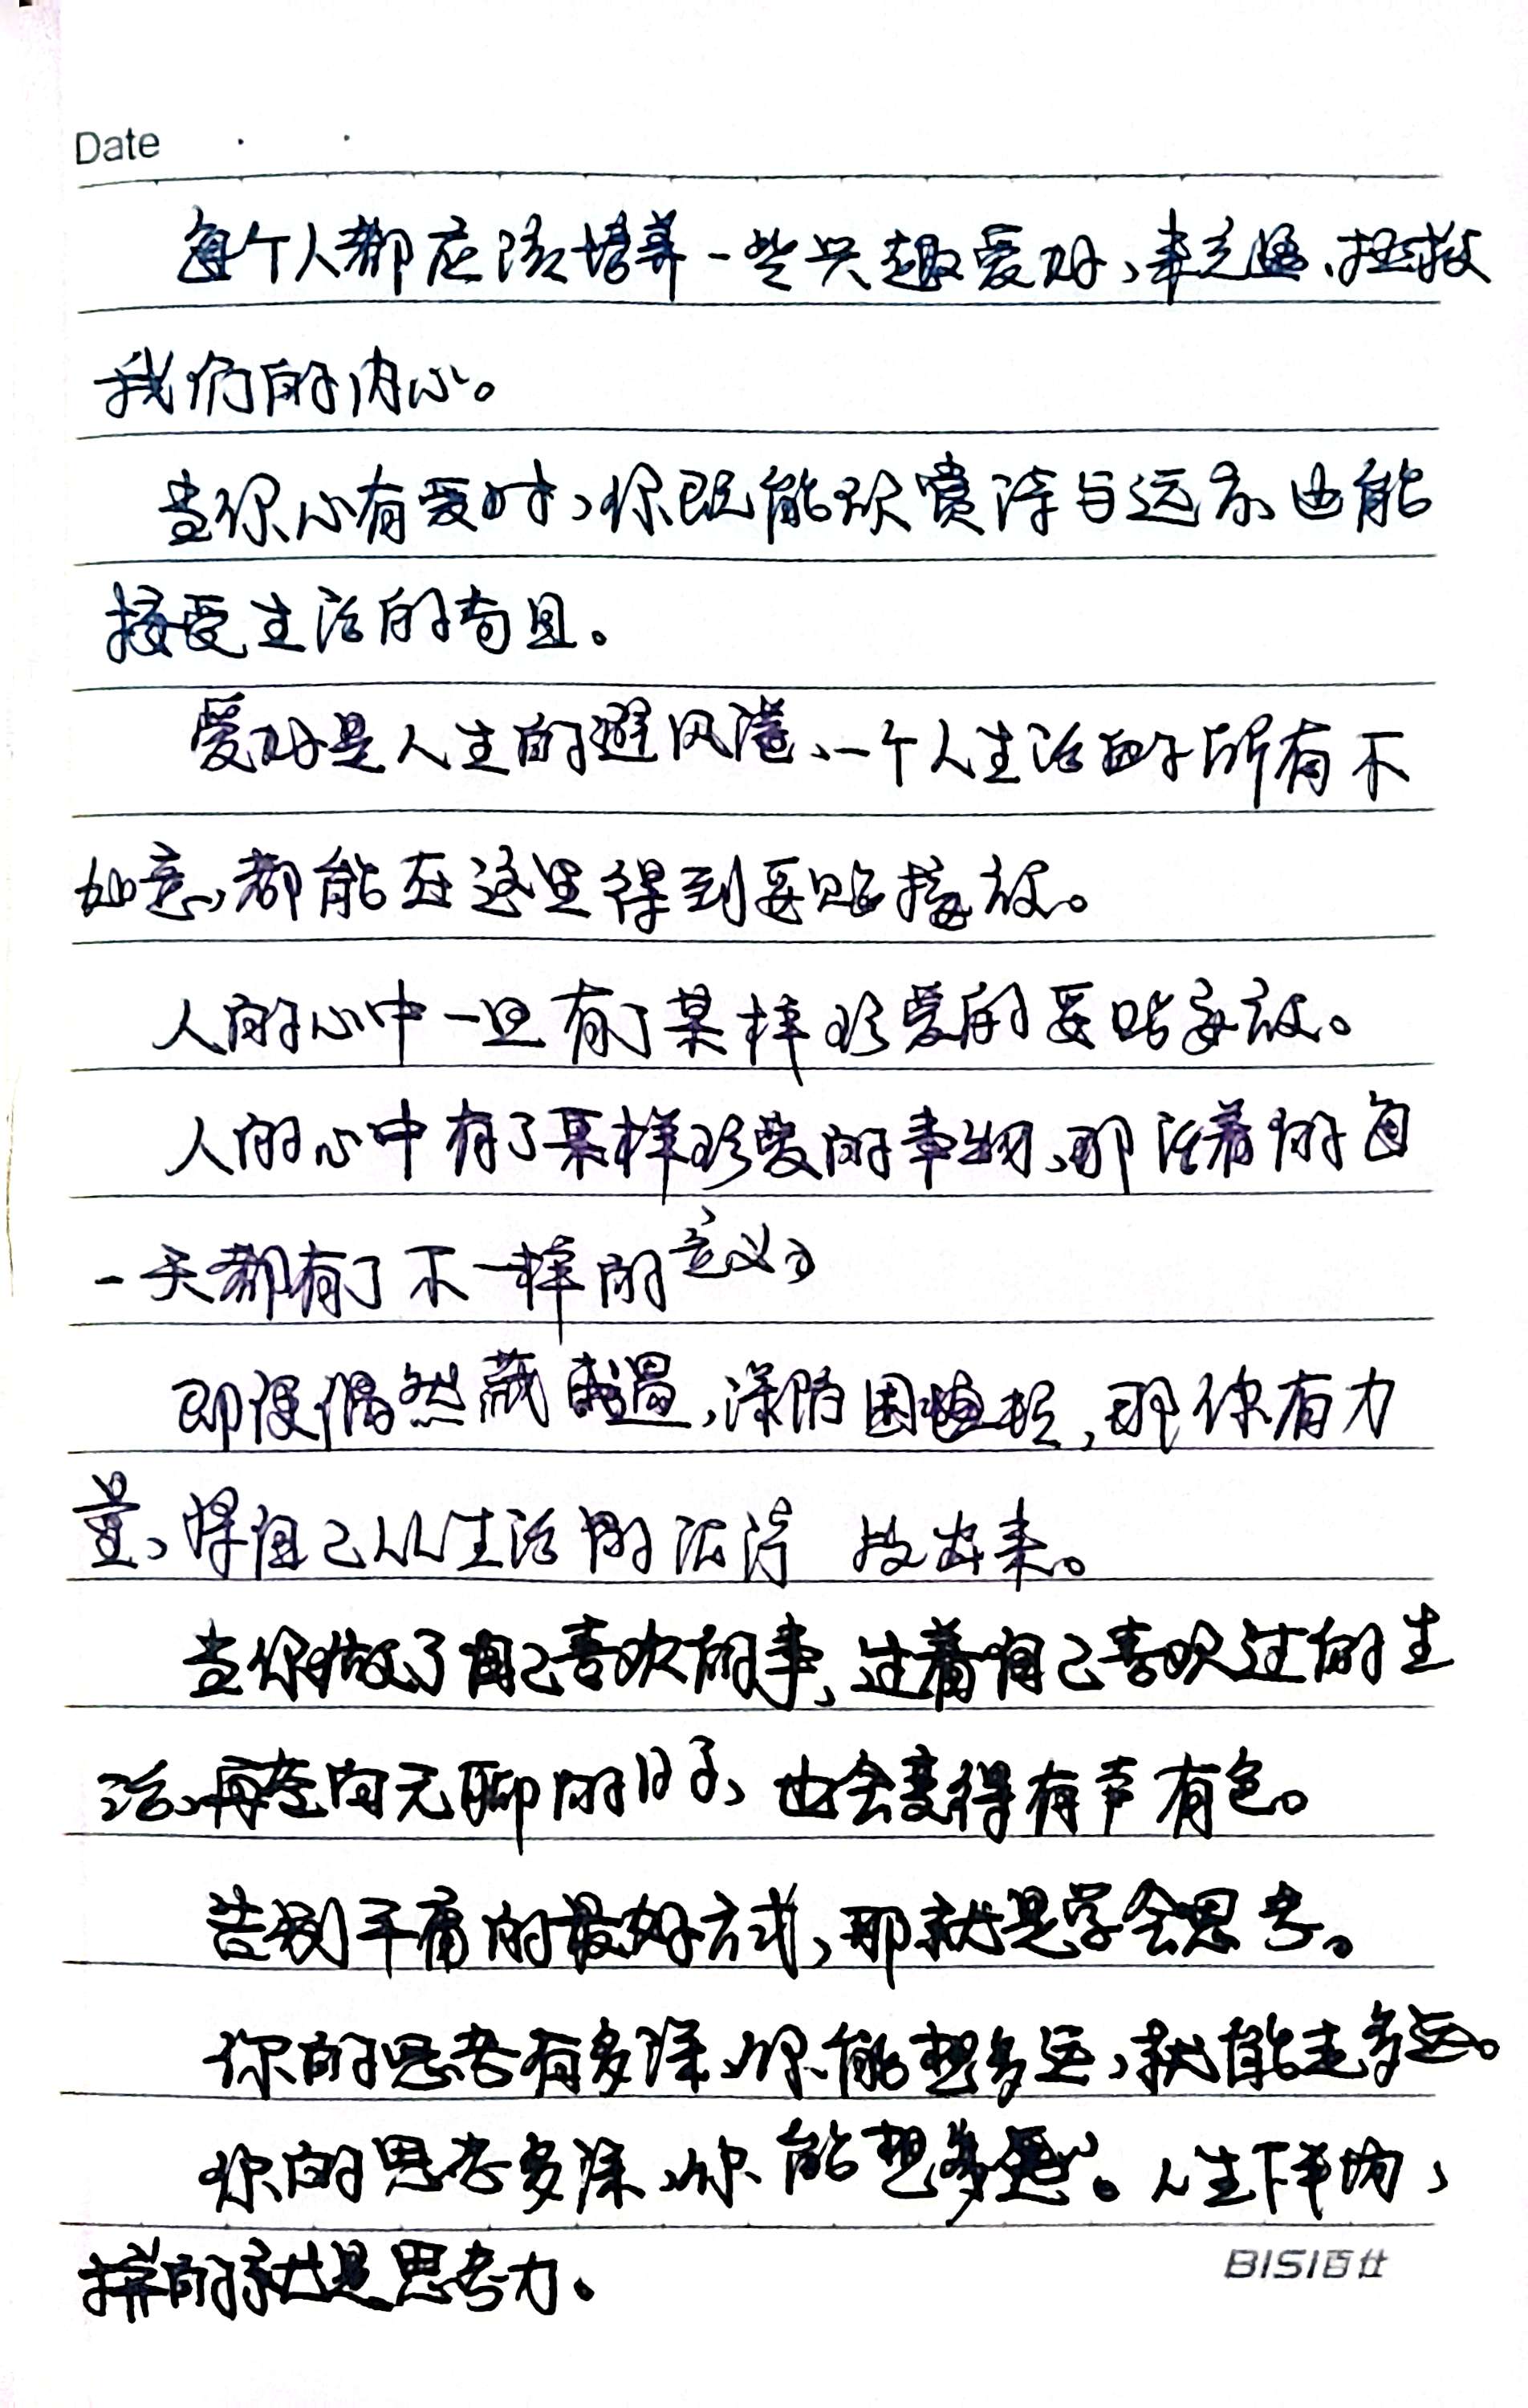 Date
每个人都应该培养一些兴趣爱好,来充盈、拯救
我们的内心。
当你心有爱时,你既能欣赏诗与远方、也能
接受生活的苟且。
爱好是人生的避风港、一个人生活的所有不
如意,都能在这里得到妥贴接放。
人的心中一旦有了某样珍爱的妥贴安放。
人的心中有了某样珍爱的事物、那活着的每
一天都有了不一样的意义。
即便偶然,深陷困,那你有力
量、将自己从生活的泥泞 拔出来。
当你做了自己喜欢的事,过着自己喜欢过的生
活、再空闲无聊的日子、也会变得有声有色。
告别平庸的最好方式,那就是学会思考。
你的思考有多深、你能想多远,就能走多远。
你的思考多深、你能想多远。人生下半场,
拼的就是思考力。
BISI百仕